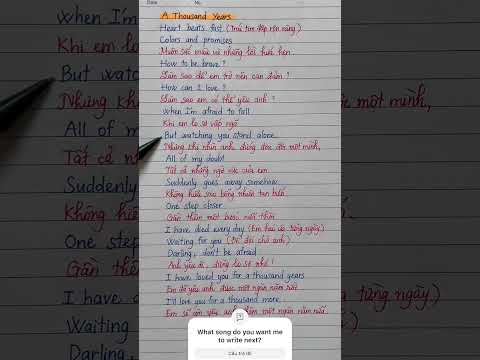 Date No.
A Thousand Years
Heart beats fast (Trái tim đập rộn ràng)
Colors and promises
Muôn sắc màu và những lời hứa hẹn
How to be brave?
Làm sao để em trở nên can đảm?
How can I love?
Làm sao em có thể yêu anh?
When I'm afraid to fall
Khi em lo sợ vấp ngã
But watching you stand alone
Nhưng khi nhìn anh đứng đơn đời một mình,
All of my doubt
Tất cả những ngờ vực của em
Suddenly goes away somehow
Không hiểu sao bỗng nhiên tan biến
One step closer
Gần thêm một bước nữa thôi
I have died every day (Em đau từng ngày)
Waiting for you (Để đợi chờ anh)
Darling, don't be afraid
Anh yêu ơi, đừng lo sợ nhé!
I have loved you for a thousand years
Em đã yêu anh được một ngàn năm rồi
I'll love you for a thousand more
Em sẽ còn yêu anh thêm một ngàn năm nữa
What song do you want me
to write next?
Câu trả lời